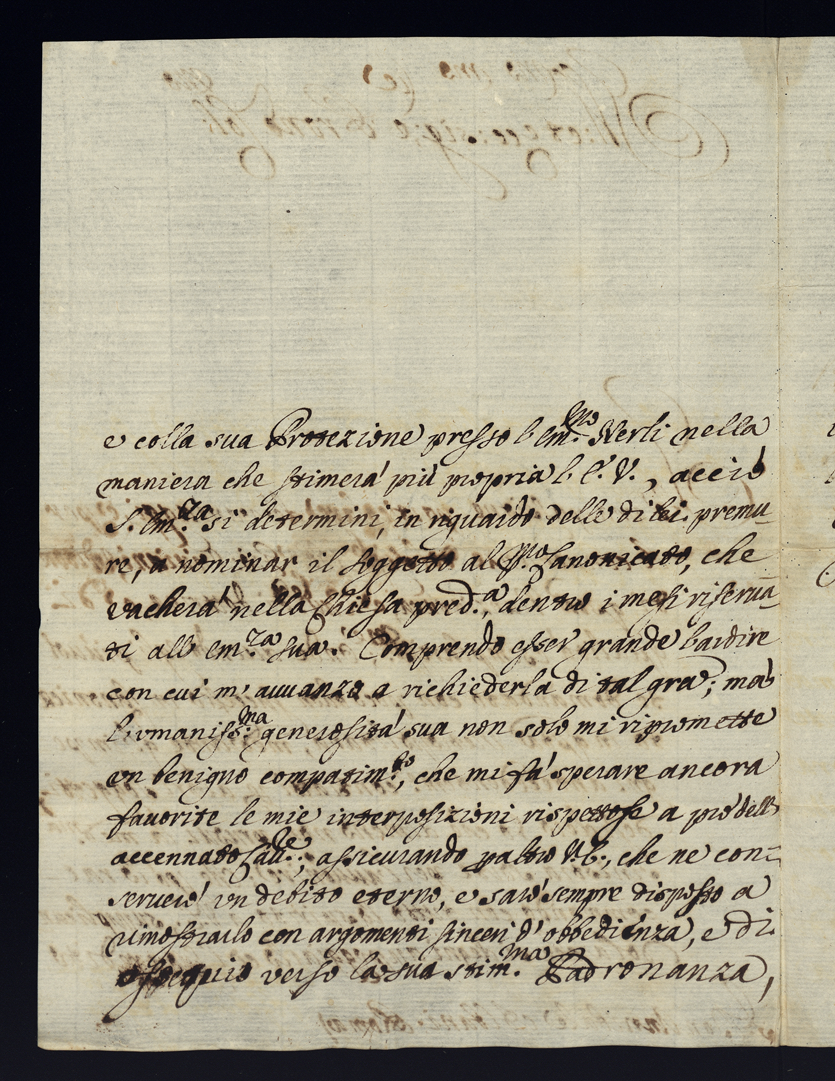 e colla sua Protezione presso l'Em.mo Nerli nella
maniera che stimerà più propria l'E. V., acciò
S. Em.za si determini, in riguardo delle di lei premu-
re, a nominar il soggetto al p.mo Canonicato, che
vacherà nella Chiesa pred.a, dentro i mesi riserva-
ti all' Em.za Sua. Comprendo esser grande l'ardire
con cui m' avvanzo a richiederla di tal gra; mà
l'vmaniss.ma generosità sua non solo mi ripromette
vn benigno compatim.to, che mi fà sperare ancora
favorite le mie interposizioni rispettose a prò dell'
accennato Cav.re; assicurando p altro V. E., che ne con=
serverò vn debito eterno, e sarò sempre disposto a
dimostrarlo con argomenti sinceri d' obbedienza, e di
ossequio verso la sua stim.ma Padronanza,